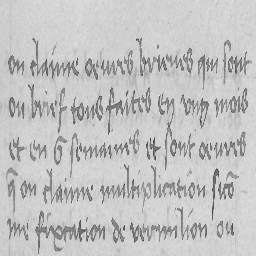 on claime oeuvres brieves qui sont
ou brief tous faites en ung mois
et en 6 semaines et sont oeuvres
q̃ on claime multiplication
me fixation de vermilion ou